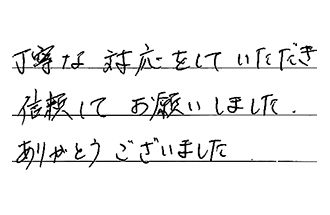 丁寧な対応をしていただき
信頼してお願いしました.
ありがとうございました